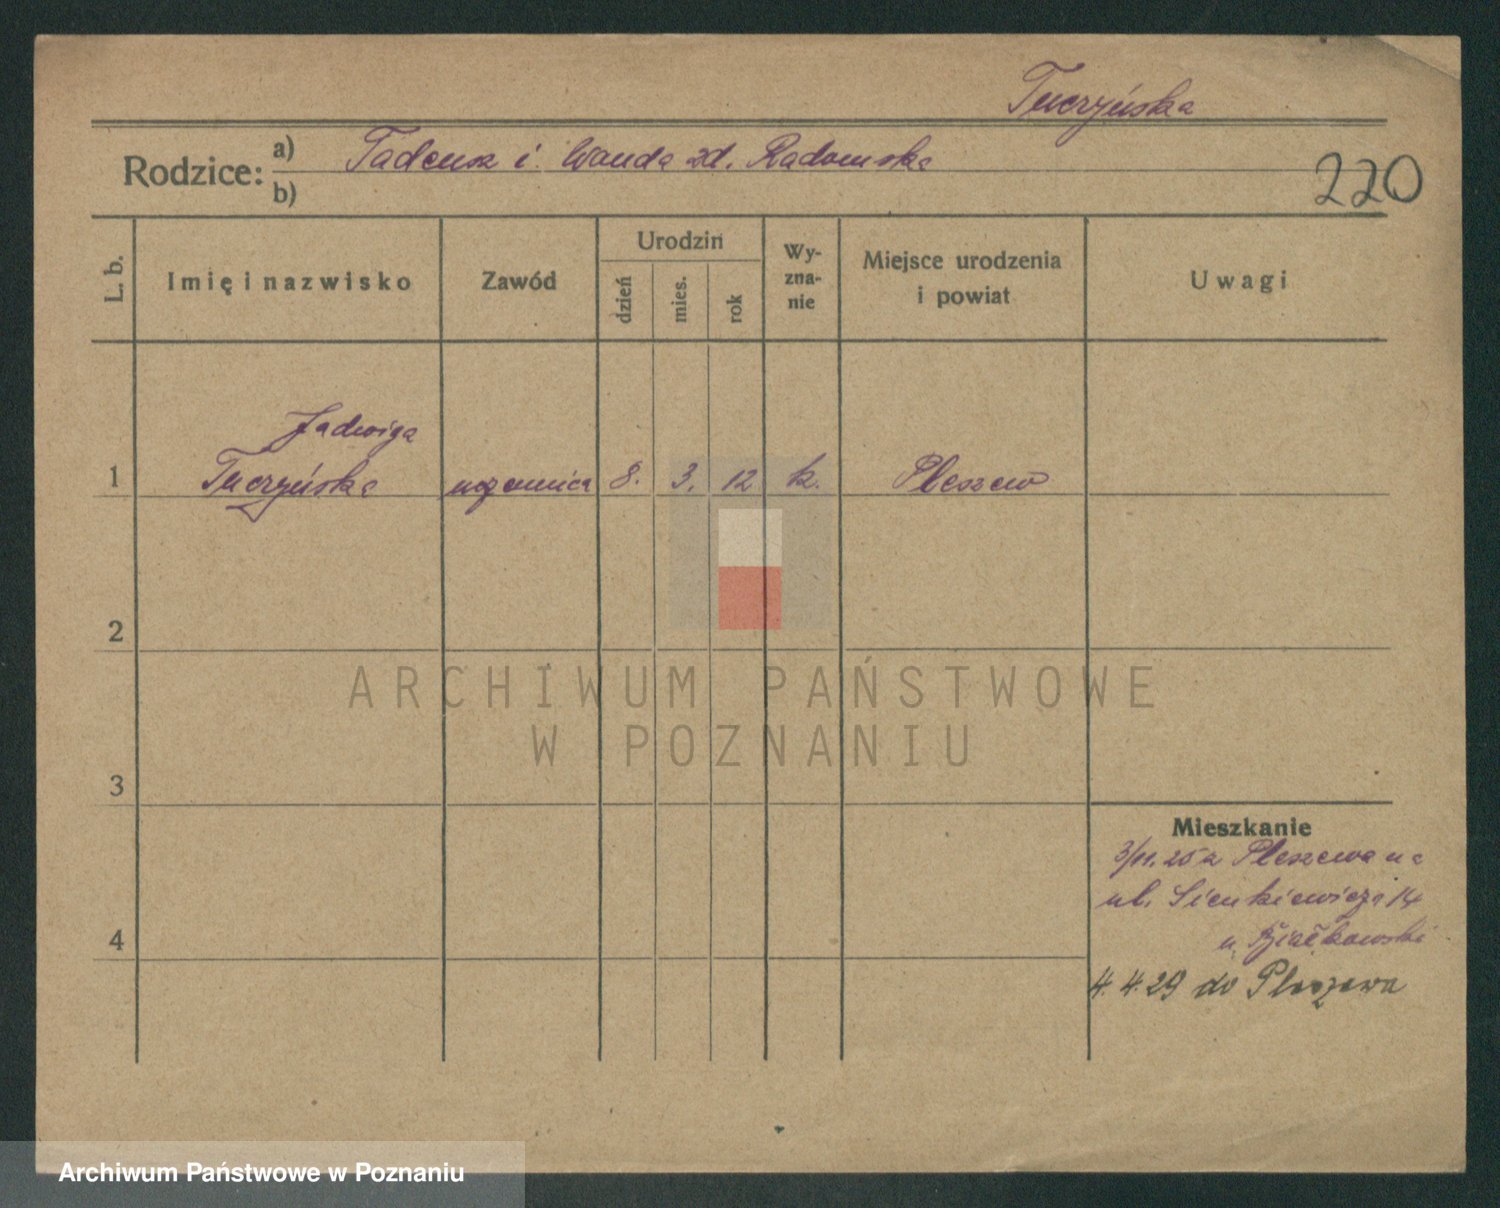 Tuczyńska
Rodzice: a) Tadeusz i Wanda zd. Radomska
b)
220
L. b.
Imię i nazwisko
Zawód
Urodzin
dzień
mies.
rok
Wy-
zna-
nie
Miejsce urodzenia
i powiat
Uwagi
Jadwiga
1 Tuczyńska uczennica 8. 3. 12 k. Pleszew
2
ARCHIWUM PAŃSTWOWE
W POZNANIU
3
Mieszkanie
3/11.25 z Pleszewa na
ul. Sienkiewicza 14
4
u
4.4.29 do Pleszewa
Archiwum Państwowe w Poznaniu